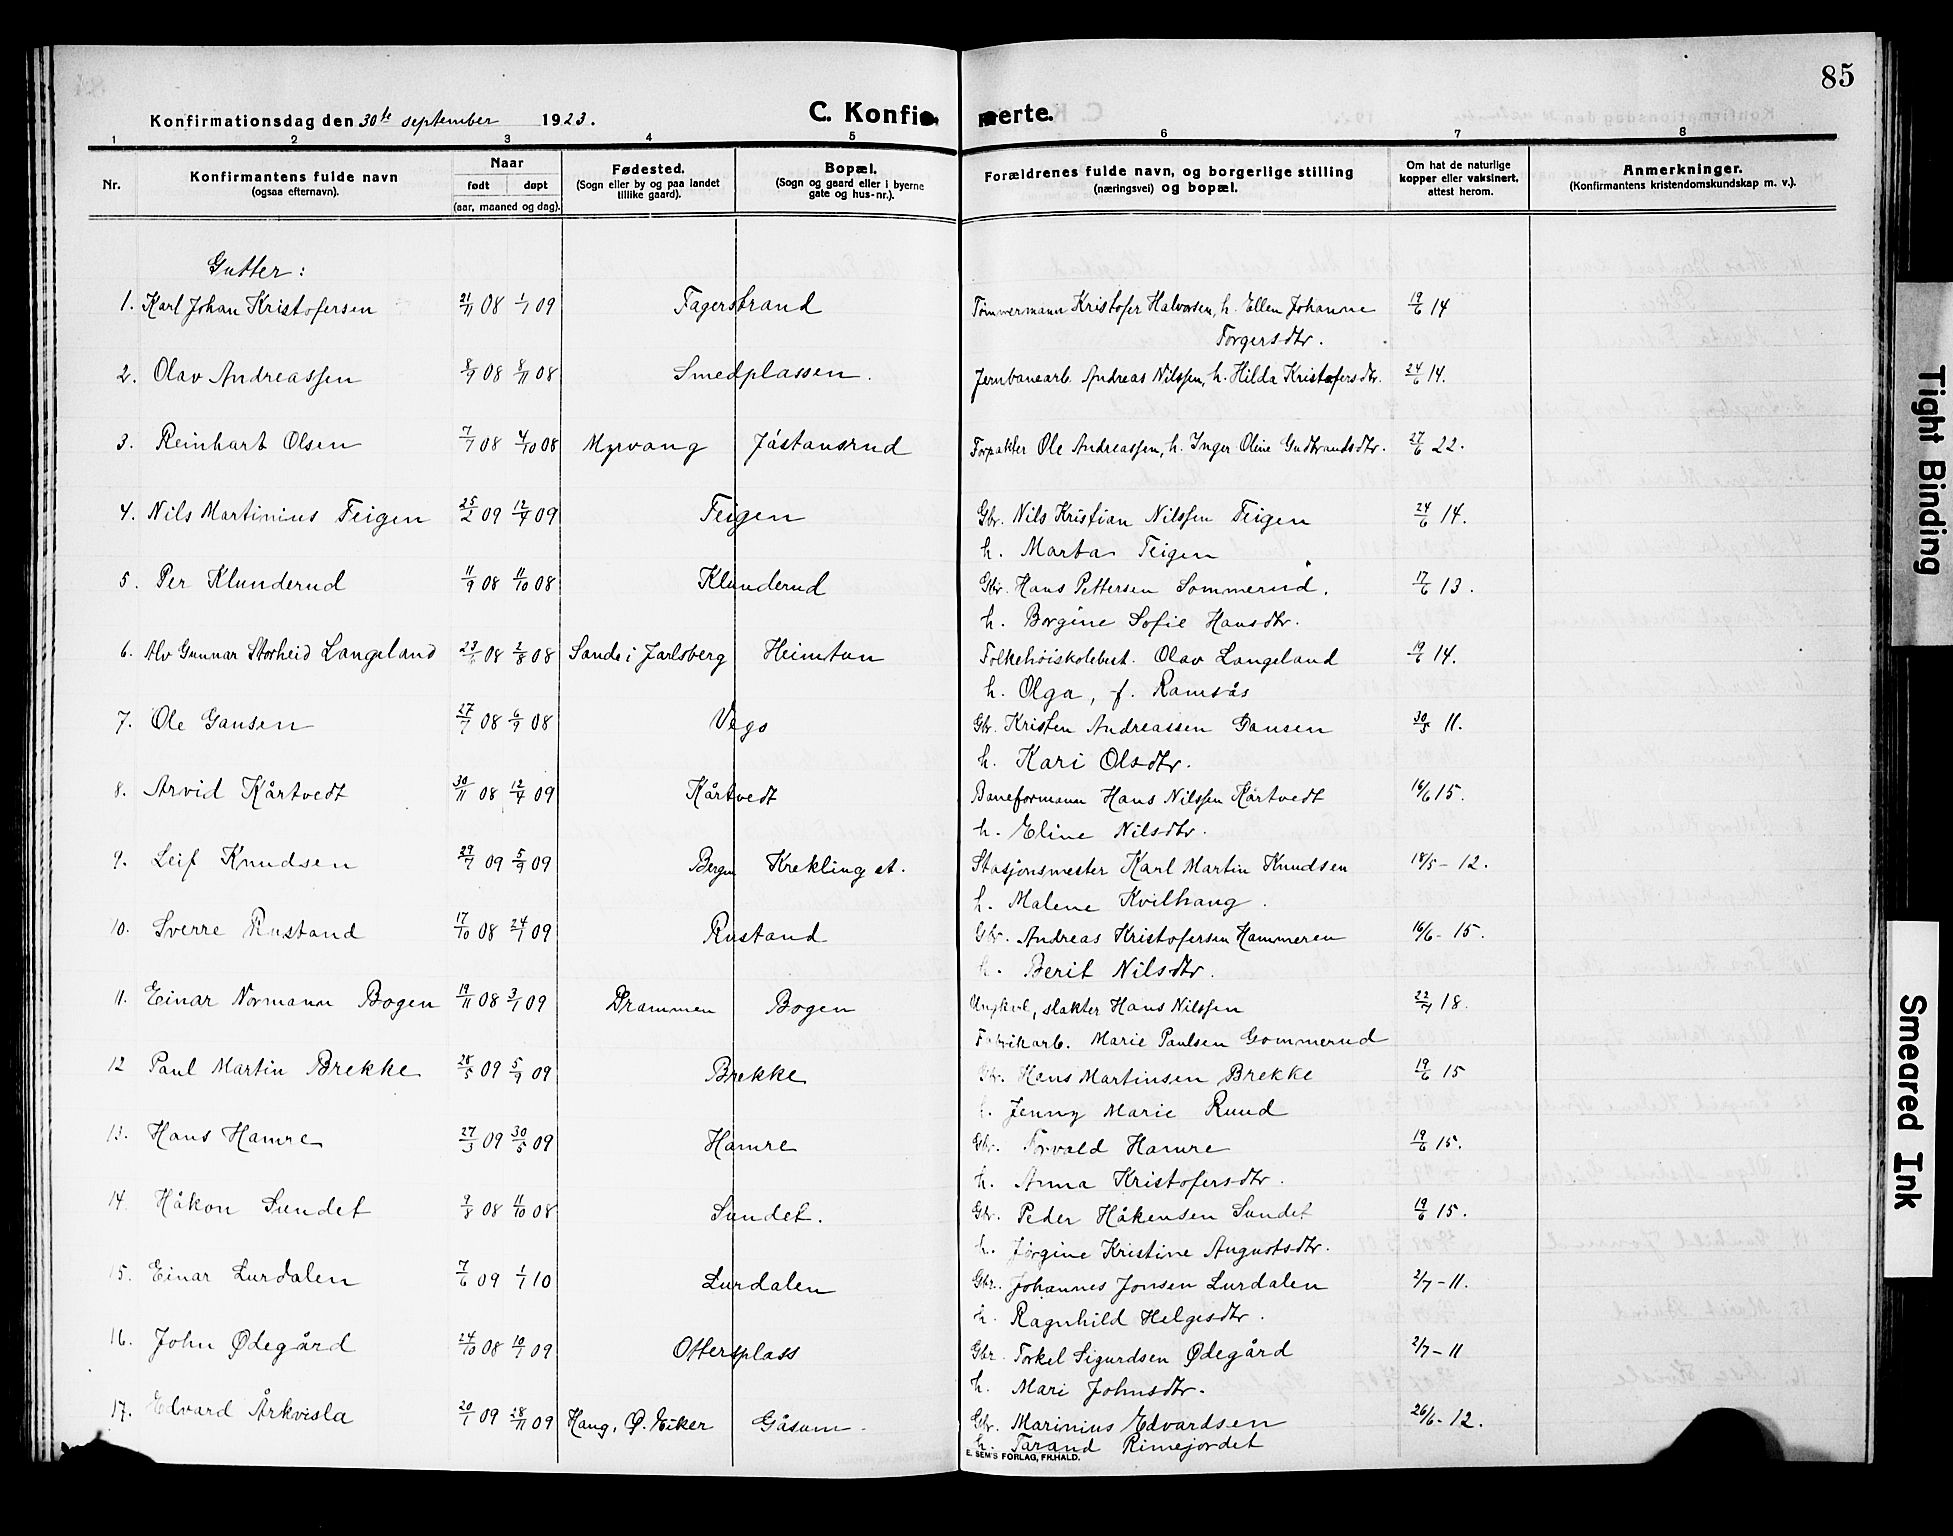 85
Konfirmationsdag den 30te september 1923.
C. Konfirmerte.
1 2 3 4 5 6 7 8
Nr.
Konfirmantens fulde navn
(ogsaa efternavn).
Naar
født døpt
(aar, maaned og dag).
Fødested.
(Sogn eller by og paa landet
tillike gaard).
Bopæl.
(Sogn og gaard eller i byerne
gate og hus-nr.).
Forældrenes fulde navn, og borgerlige stilling
(næringsvei) og bopæl.
Om hat de naturlige
kopper eller vaksinert,
attest herom.
Anmerkninger.
(Konfirmantens kristendomskundskap m. v.).
Gutter:
1. Karl Johan Kristofersen 21/11 08 1/1 09 Fagerstrand Tømmermann Kristofer Halvorsen, h. Ellen Johanne 19/6 14
Torgersdtr.
2. Olav Andreassen 8/9 08 8/11 08 Smedplassen. Jernbanearb. Andreas Nilssen, h. Hilda Kristofersdtr. 24/6 14.
3. Reinhart Olsen 7/7 08 4/10 08 Myrvang Jåstansrud Forpakter Ole Andreassen, h. Inger Oline Gudbrandsdtr. 27/6 22.
4. Nils Martinius Teigen 25/2 09 12/4 09 Teigen Gbr. Nils Kristian Nilssen Teigen 24/6 14.
h. Marta Teigen
5. Per Klunderud 11/9 08 11/10 08 Klunderud Gbr. Hans Pettersen Sommerud. 17/6 13.
h. Borgine Sofie Hansdtr.
6. Alv Gunnar Storheid Langeland 23/6 08 2/8 08 Sande i Jarlsberg Heimtun Folkehøiskolebest. Olav Langeland 19/6 14.
h. Olga, f. Ramsås
7. Ole Gausen 27/7 08 6/9 08 Vego Gbr. Kristen Andreassen Gausen 30/5 11.
h. Kari Olsdtr.
8. Arvid Kårtvedt 30/11 08 12/4 09 Kårtvedt Baneformann Hans Nilssen Kårtvedt 16/6 15.
h. Eline Nilsdtr.
9. Leif Knudsen 29/7 09 5/9 09 Bergen Krekling st. Stasjonsmester Karl Martin Knudsen 18/5 - 12.
h. Malene Kvilhaug.
10. Sverre Rustand 17/10 08 24/1 09 Rustand Gbr. Andreas Kristofersen Hammeren 16/6 - 15.
h. Berit Nilsdtr.
11. Einar Normann Bogen 19/11 08 3/1 09 Drammen Bogen Ungkarl, slakter Hans Nilssen 22/4 18.
Fabrikarb. Marie Paulsen Gommerud
12 Paul Martin Brekke 28/5 09 5/9 09 Brekke Gbr. Hans Martinsen Brekke 19/6 15
h. Jenny Marie Ruud
13. Hans Hamre 27/3 09 30/5 09 Hamre Gbr. Torvald Hamre 19/6 15.
h. Anna Kristofersdtr.
14. Håkon Sundet 9/8 08 11/10 08 Sundet. Gbr. Peder Håkensen Sundet 19/6 15.
h. Jørgine Kristine Augustsdtr.
15. Einar Lurdalen 7/6 09 1/1 10 Lurdalen Gbr. Johannes Jonsen Lurdalen 2/7 - 11.
h. Ragnhild Helgesdtr.
16. John Ødegård 24/10 08 10/1 09 Ottersplass Gbr. Torkel Sigurdsen Ødegård 2/7 - 11
h. Mari Johnsdtr.
17. Edvard Årkvisla 20/1 09 28/11 09 Haug, Ø. Eiker Gåsum. Gbr. Marinius Edvardsen 26/6 - 12.
h. Tarand Rimejordet
E. SEM'S FORLAG, FR.HALD.
Tight Binding
Smeared Ink